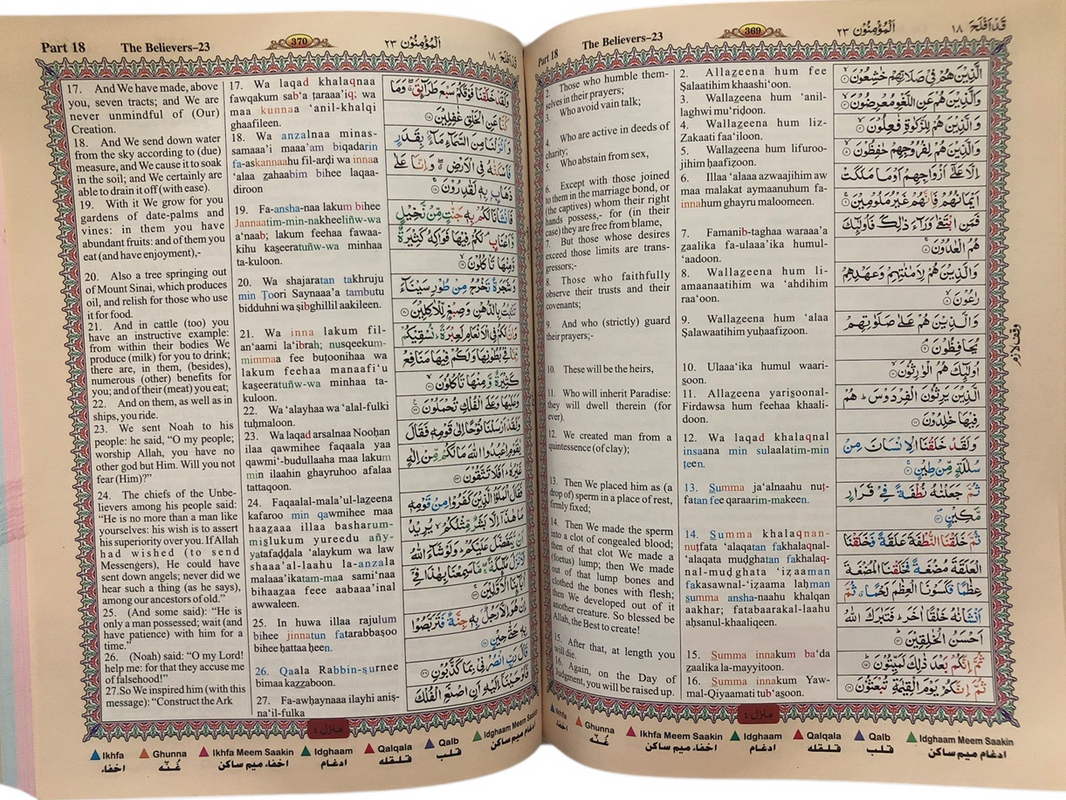 Part 18
The Believers–23
369
اَلْمُؤْمِنُوْن ٢٣
قَدْ اَفْلَحَ ١٨
2. Those who humble them-
selves in their prayers;
3. Who avoid vain talk;
4. Who are active in deeds of
charity;
5. Who abstain from sex,
6. Except with those joined
to them in the marriage bond, or
(the captives) whom their right
hands possess,- for (in their
case) they are free from blame,
7. But those whose desires
exceed those limits are trans-
gressors;-
8. Those who faithfully
observe their trusts and their
covenants;
9. And who (strictly) guard
their prayers;-
10. These will be the heirs,
11. Who will inherit Paradise:
they will dwell therein (for
ever).
12. We created man from a
quintessence (of clay);
13. Then We placed him as (a
drop of) sperm in a place of rest,
firmly fixed;
14. Then We made the sperm
into a clot of congealed blood;
then of that clot We made a
(foetus) lump; then We made
out of that lump bones and
clothed the bones with flesh;
then We developed out of it
another creature. So blessed be
Allah, the Best to create!
15. After that, at length you
will die.
16. Again, on the Day of
Judgment, you will be raised up.
2. Allazeena hum fee
Ṣalaatihim khaashi'oon.
3. Wallazeena hum 'anil-
laghwi mu'riḍoon.
4. Wallazeena hum liz-
Zakaati faa'iloon.
5. Wallazeena hum lifuroo-
jihim ḥaafiẓoon.
6. Illaa 'alaaa azwaajihim aw
maa malakat aymaanuhum fa-
innahum ghayru maloomeen.
7. Famanib-taghaa waraaa'a
zaalika fa-ulaaa'ika humul-
'aadoon.
8. Wallazeena hum li-
amaanaatihim wa 'ahdihim
raa'oon.
9. Wallazeena hum 'alaa
Ṣalawaatihim yuḥaafiẓoon.
10. Ulaaa'ika humul waari-
soon.
11. Allazeena yarisoonal-
Firdawsa hum feehaa khaali-
doon.
12. Wa laqad khalaqnal
insaana min sulaalatim-min
ṭeen.
13. Summa ja'alnaahu nuṭ-
fatan fee qaraarim-makeen.
14. Summa khalaqnan-
nuṭfata 'alaqatan fakhalaqnal-
'alaqata muḍghatan fakhalaq-
nal-muḍghata 'iẓaaman
fakasawnal-'iẓaama laḥman
summa ansha-naahu khalqan
aakhar; fatabaarakal-laahu
aḥsanul-khaaliqeen.
15. Summa innakum ba'da
zaalika la-mayyitoon.
16. Summa innakum Yaw-
mal-Qiyaamati tub'aṡoon.
الَّذِيْنَ هُمْ فِىْ صَلَاتِهِمْ خٰشِعُوْنَ ۙ
وَالَّذِيْنَ هُمْ عَنِ اللَّغْوِ مُعْرِضُوْنَ ۙ
وَالَّذِيْنَ هُمْ لِلزَّكٰوةِ فٰعِلُوْنَ ۙ
وَالَّذِيْنَ هُمْ لِفُرُوْجِهِمْ حٰفِظُوْنَ ۙ
اِلَّا عَلٰٓى اَزْوَاجِهِمْ اَوْ مَا مَلَكَتْ
اَيْمَانُهُمْ فَاِنَّهُمْ غَيْرُ مَلُوْمِيْنَ ۚ
فَمَنِ ابْتَغٰى وَرَآءَ ذٰلِكَ فَاُولٰٓئِكَ
هُمُ الْعٰدُوْنَ ۚ
وَالَّذِيْنَ هُمْ لِاَمٰنٰتِهِمْ وَعَهْدِهِمْ
رٰعُوْنَ ۙ
وَالَّذِيْنَ هُمْ عَلٰى صَلَوٰتِهِمْ
يُحَافِظُوْنَ ۘ
اُولٰٓئِكَ هُمُ الْوٰرِثُوْنَ ۙ
الَّذِيْنَ يَرِثُوْنَ الْفِرْدَوْسَ ؕ هُمْ
فِيْهَا خٰلِدُوْنَ
وَلَقَدْ خَلَقْنَا الْاِنْسَانَ مِنْ
سُلٰلَةٍ مِّنْ طِيْنٍ ۚ
ثُمَّ جَعَلْنٰهُ نُطْفَةً فِىْ قَرَارٍ
مَّكِيْنٍ ۪
ثُمَّ خَلَقْنَا النُّطْفَةَ عَلَقَةً فَخَلَقْنَا
الْعَلَقَةَ مُضْغَةً فَخَلَقْنَا الْمُضْغَةَ
عِظٰمًا فَكَسَوْنَا الْعِظٰمَ لَحْمًا ۗ ثُمَّ
اَنْشَاْنٰهُ خَلْقًا اٰخَرَ ؕ فَتَبٰرَكَ اللّٰهُ
اَحْسَنُ الْخٰلِقِيْنَ ؕ
ثُمَّ اِنَّكُمْ بَعْدَ ذٰلِكَ لَمَيِّتُوْنَ ؕ
ثُمَّ اِنَّكُمْ يَوْمَ الْقِيٰمَةِ تُبْعَثُوْنَ
وقف لازم
منزل ٤
Ikhfa
Ghunna
Ikhfa Meem Saakin
Idghaam
Qalqala
Qalb
Idghaam Meem Saakin
اخفاء
غُنّه
اخفاء میم ساکن
ادغام
قلقله
قلب
ادغام میم ساکن
Part 18
The Believers–23
370
اَلْمُؤْمِنُوْن ٢٣
قَدْ اَفْلَحَ ١٨
17. And We have made, above
you, seven tracts; and We are
never unmindful of (Our)
Creation.
18. And We send down water
from the sky according to (due)
measure, and We cause it to soak
in the soil; and We certainly are
able to drain it off (with ease).
19. With it We grow for you
gardens of date-palms and
vines: in them you have
abundant fruits: and of them you
eat (and have enjoyment),-
20. Also a tree springing out
of Mount Sinai, which produces
oil, and relish for those who use
it for food.
21. And in cattle (too) you
have an instructive example:
from within their bodies We
produce (milk) for you to drink;
there are, in them, (besides),
numerous (other) benefits for
you; and of their (meat) you eat;
22. And on them, as well as in
ships, you ride.
23. We sent Noah to his
people: he said, "O my people;
worship Allah, you have no
other god but Him. Will you not
fear (Him)?"
24. The chiefs of the Unbe-
lievers among his people said:
"He is no more than a man like
yourselves: his wish is to assert
his superiority over you. If Allah
had wished (to send
Messengers), He could have
sent down angels; never did we
hear such a thing (as he says),
among our ancestors of old."
25. (And some said): "He is
only a man possessed; wait (and
have patience) with him for a
time."
26. (Noah) said: "O my Lord!
help me: for that they accuse me
of falsehood!"
27.So We inspired him (with this
message): "Construct the Ark
17. Wa laqad khalaqnaa
fawqakum sab'a ṭaraaa'iq; wa
maa kunnaa 'anil-khalqi
ghaafileen.
18. Wa anzalnaa minas-
samaaa'i maaa'am biqadarin
fa-askannaahu fil-arḍi wa innaa
'alaa zahaabim bihee laqaa-
diroon
19. Fa-ansha-naa lakum bihee
Jannaatim-min-nakheeliñw-wa
a'naab; lakum feehaa fawaa-
kihu kaṡeeratuñw-wa minhaa
ta-kuloon.
20. Wa shajaratan takhruju
min Ṭoori Saynaaa'a tambutu
bidduhni wa ṣibghillil aakileen.
21. Wa inna lakum fil-
an'aami la'ibrah; nusqeekum-
mimmaa fee buṭoonihaa wa
lakum feehaa manaafi'u
kaṡeeratuñw-wa minhaa ta-
kuloon.
22. Wa 'alayhaa wa'alal-fulki
tuḥmaloon.
23. Wa laqad arsalnaa Nooḥan
ilaa qawmihee faqaala yaa
qawmi'-budullaaha maa lakum
min ilaahin ghayruhoo afalaa
tattaqoon.
24. Faqaalal-mala'ul-lazeena
kafaroo min qawmihee maa
haazaaa illaa basharum-
mislukum yureedu añy-
yatafaḍḍala 'alaykum wa law
shaaa'al-laahu la-anzala
malaaa'ikatam-maa sami'naa
bihaazaa feee aabaaa'inal
awwaleen.
25. in huwa illaa rajulum
bihee jinnatun fatarabbaṣoo
bihee ḥattaa ḥeen.
26. Qaala Rabbin-ṣurnee
bimaa kazzaboon.
27. Fa-awḥaynaaa ilayhi aniṣ-
na'il-fulka
وَلَقَدْ خَلَقْنَا فَوْقَكُمْ سَبْعَ طَرَآئِقَ ۖ وَمَا
كُنَّا عَنِ الْخَلْقِ غٰفِلِيْنَ
وَاَنْزَلْنَا مِنَ السَّمَآءِ مَآءًۢ بِقَدَرٍ
فَاَسْكَنّٰهُ فِى الْاَرْضِ ۖ وَاِنَّا عَلٰى
ذَهَابٍۭ بِهٖ لَقٰدِرُوْنَ ۚ
فَاَنْشَاْنَا لَكُمْ بِهٖ جَنّٰتٍ مِّنْ نَّخِيْلٍ
وَّاَعْنَابٍ ۘ لَكُمْ فِيْهَا فَوَاكِهُ كَثِيْرَةٌ
وَّمِنْهَا تَاْكُلُوْنَ ۙ
وَشَجَرَةً تَخْرُجُ مِنْ طُوْرِ سَيْنَآءَ
تَنْۢبُتُ بِالدُّهْنِ وَصِبْغٍ لِّلْاٰكِلِيْنَ
وَاِنَّ لَكُمْ فِى الْاَنْعَامِ لَعِبْرَةً ؕ نُسْقِيْكُمْ
مِّمَّا فِىْ بُطُوْنِهَا وَلَكُمْ فِيْهَا مَنَافِعُ
كَثِيْرَةٌ وَّمِنْهَا تَاْكُلُوْنَ ۙ
وَعَلَيْهَا وَعَلَى الْفُلْكِ تُحْمَلُوْنَ
وَلَقَدْ اَرْسَلْنَا نُوْحًا اِلٰى قَوْمِهٖ فَقَالَ
يٰقَوْمِ اعْبُدُوا اللّٰهَ مَا لَكُمْ مِّنْ اِلٰهٍ
غَيْرُهٗ ؕ اَفَلَا تَتَّقُوْنَ
فَقَالَ الْمَلَؤُا الَّذِيْنَ كَفَرُوْا مِنْ قَوْمِهٖ
مَا هٰذَآ اِلَّا بَشَرٌ مِّثْلُكُمْ ۙ يُرِيْدُ
اَنْ يَّتَفَضَّلَ عَلَيْكُمْ ؕ وَلَوْ شَآءَ اللّٰهُ
لَاَنْزَلَ مَلٰٓئِكَةً ۖ مَّا سَمِعْنَا بِهٰذَا فِىْٓ
اٰبَآئِنَا الْاَوَّلِيْنَ ۚ
اِنْ هُوَ اِلَّا رَجُلٌۢ بِهٖ جِنَّةٌ فَتَرَبَّصُوْا
بِهٖ حَتّٰى حِيْنٍ
قَالَ رَبِّ انْصُرْنِىْ بِمَا كَذَّبُوْنِ
فَاَوْحَيْنَآ اِلَيْهِ اَنِ اصْنَعِ الْفُلْكَ
منزل ٤
Ikhfa
Ghunna
Ikhfa Meem Saakin
Idghaam
Qalqala
Qalb
Idghaam Meem Saakin
اخفاء
غُنّه
اخفاء میم ساکن
ادغام
قلقله
قلب
ادغام میم ساکن